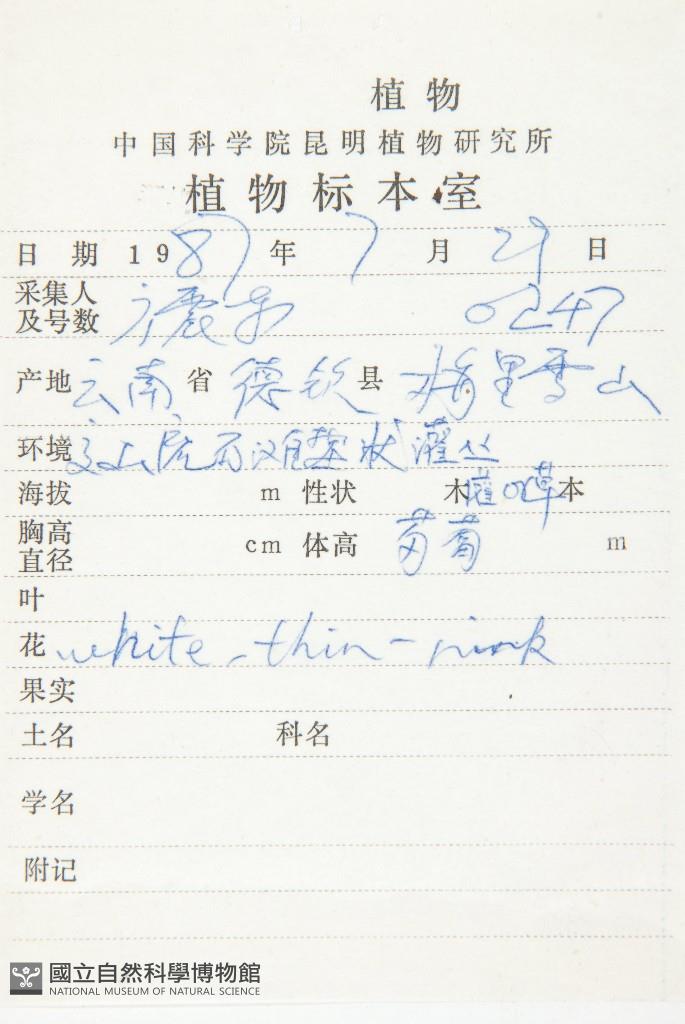 植物
中国科学院昆明植物研究所
植物标本室
日期 1987年 7月 29日
采集人
及号数 0247
产地 云南省 德钦县 梅里雪山
环境 状灌丛
海拔 m 性状 木 灌 草 本
胸高
直径 cm 体高 m
叶
花 white - thin - pink
果实
土名 科名
学名
附记
國立自然科學博物館
NATIONAL MUSEUM OF NATURAL SCIENCE